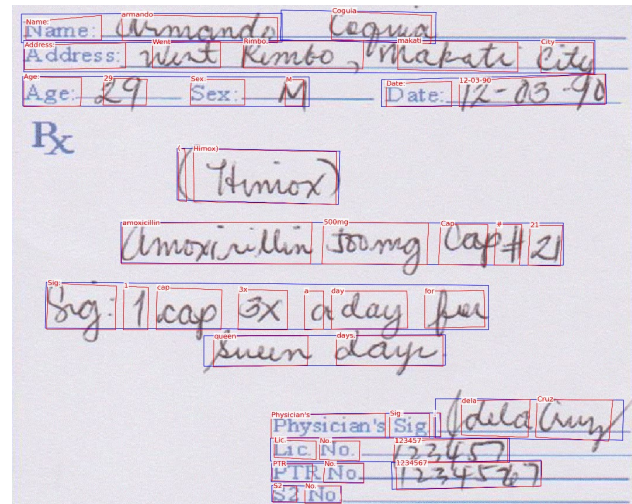 Name: Armando Coquia
Address: West Rimbo, Makati City
Age: 29 Sex: M Date: 12-03-90
Rx
(Himox)
Amoxicillin 500mg Cap # 21
Sig: 1 cap 3x a day for
seven days
Physician's Sig dela Cruz
Lic. No. 123457
PTR No. 1234567
S2 No.